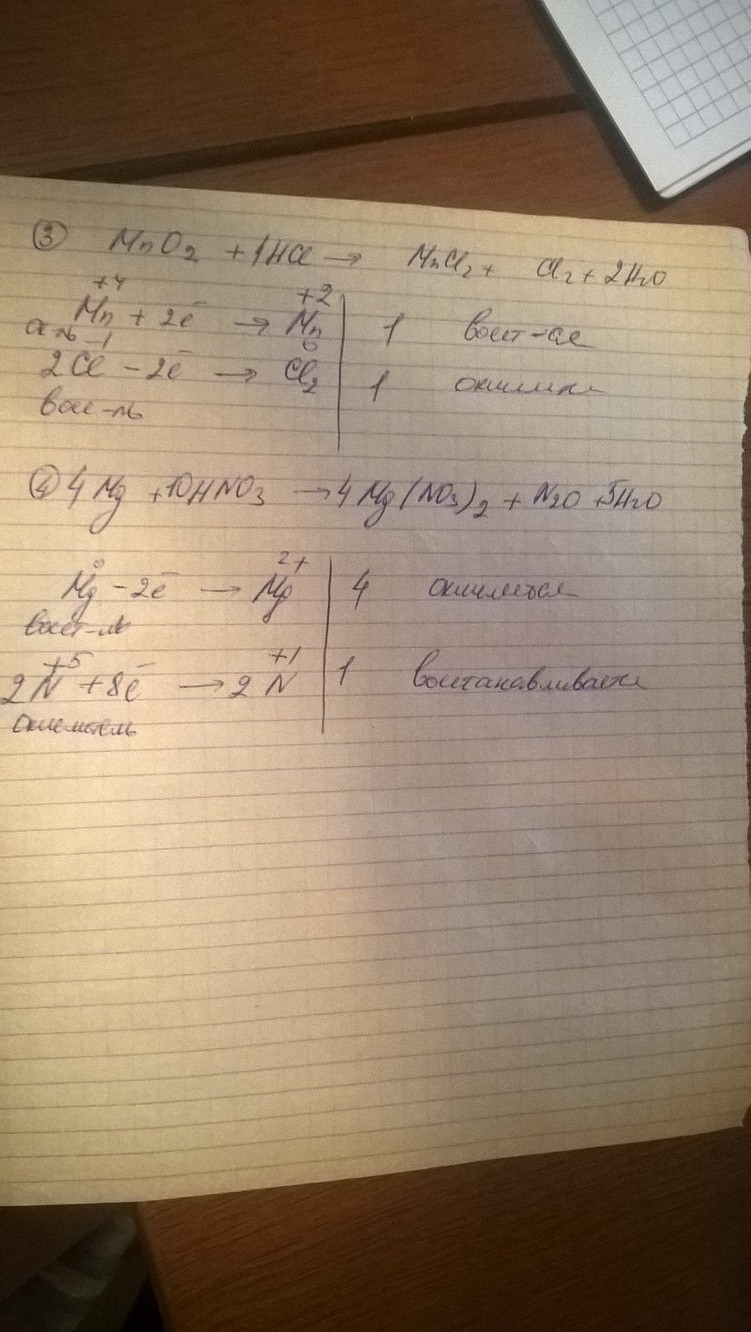 ③ MnO₂ + 4HCl → MnCl₂ + Cl₂ + 2H₂O
+4 +2
Mn + 2ē → Mn | 1 восст-ся
ок-ль -1 0
2Cl - 2ē → Cl₂ | 1
вос-ль
④ 4Mg + 10HNO₃ → 4Mg(NO₃)₂ + N₂O + 5H₂O
0 2+
Mg - 2ē → Mg | 4 окисляется
восст-ль
+5 +1
2N + 8ē → 2N | 1 восстанавливается
окислитель